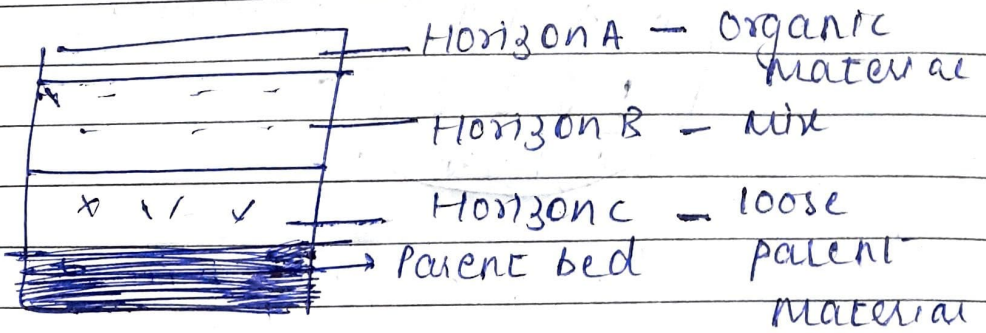 Horizon A - Organic
material
Horizon B - Mix
Horizon C - loose
Parent bed parent
material